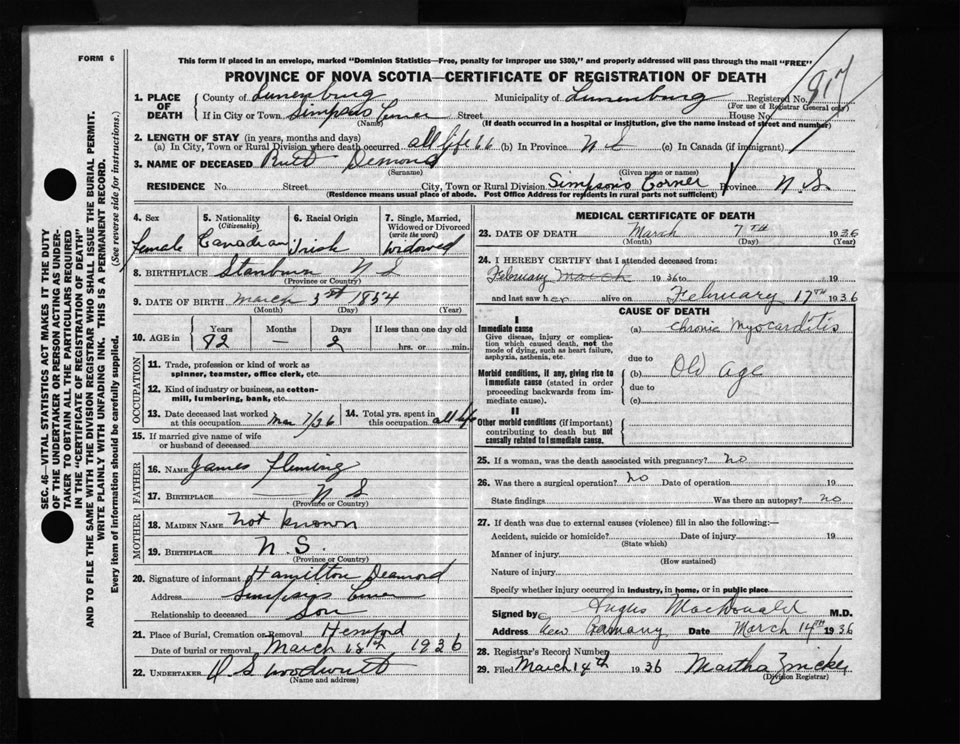 FORM 6
This form if placed in an envelope, marked "Dominion Statistics—Free, penalty for improper use $300," and properly addressed will pass through the mail "FREE"
PROVINCE OF NOVA SCOTIA—CERTIFICATE OF REGISTRATION OF DEATH
917
SEC. 46—VITAL STATISTICS ACT MAKES IT THE DUTY
OF THE UNDERTAKER OR PERSON ACTING AS UNDER-
TAKER TO OBTAIN ALL THE PARTICULARS REQUIRED
IN THE "CERTIFICATE OF REGISTRATION OF DEATH"
AND TO FILE THE SAME WITH THE DIVISION REGISTRAR WHO SHALL ISSUE THE BURIAL PERMIT.
WRITE PLAINLY WITH UNFADING INK. THIS IS A PERMANENT RECORD.
Every item of information should be carefully supplied. (See reverse side for instructions.)
1. PLACE OF DEATH
County of Lunenburg Municipality of Lunenburg Registered No.
(For use of Registrar General only)
If in City or Town Simpsons Corner Street House No.
(Name) (If death occurred in a hospital or institution, give the name instead of street and number)
2. LENGTH OF STAY (in years, months and days)
(a) In City, Town or Rural Division where death occurred all life (b) In Province N S (c) In Canada (if immigrant)
3. NAME OF DECEASED Demond
(Surname) (Given name or names)
RESIDENCE No. Street City, Town or Rural Division Simpsons Corner Province N.S.
(Residence means usual place of abode. Post Office Address for residents in rural parts not sufficient)
4. Sex
female
5. Nationality
(Citizenship)
Canadian
6. Racial Origin
Irish
7. Single, Married,
Widowed or Divorced
(write the word)
Widowed
8. BIRTHPLACE Stanburn N S
(Province or Country)
9. DATE OF BIRTH March 3rd 1854
(Month) (Day) (Year)
10. AGE in
Years Months Days If less than one day old
82 — 2 hrs. or min.
OCCUPATION
11. Trade, profession or kind of work as
spinner, teamster, office clerk, etc.
12. Kind of industry or business, as cotton-
mill, lumbering, bank, etc.
13. Date deceased last worked
at this occupation Mar 7/36
14. Total yrs. spent in
this occupation all life
15. If married give name of wife
or husband of deceased
FATHER
16. NAME James Fleming
17. BIRTHPLACE N S
(Province or Country)
MOTHER
18. MAIDEN NAME not known
19. BIRTHPLACE N. S.
(Province or Country)
20. Signature of informant Hamilton Demond
Address Simpsons Corner
Relationship to deceased Son
21. Place of Burial, Cremation or Removal Hemford
Date of burial or removal March 1936
22. UNDERTAKER
(Name and address)
MEDICAL CERTIFICATE OF DEATH
23. DATE OF DEATH March 7TH 1936
(Month) (Day) (Year)
24. I HEREBY CERTIFY that I attended deceased from:
February March 1936 to 19
and last saw her alive on February 17TH 1936
CAUSE OF DEATH
I
Immediate cause
Give disease, injury or complica-
tion which caused death, not the
mode of dying, such as heart failure,
asphyxia, asthenia, etc.
(a) Chronic Myocarditis
due to
Morbid conditions, if any, giving rise to
immediate cause (stated in order
proceeding backwards from im-
mediate cause).
(b) Old age
due to
(c)
II
Other morbid conditions (if important)
contributing to death but not
causally related to immediate cause.
25. If a woman, was the death associated with pregnancy? no
26. Was there a surgical operation? no Date of operation 19
State findings Was there an autopsy? no
27. If death was due to external causes (violence) fill in also the following:—
Accident, suicide or homicide? Date of injury 19
(State which)
Manner of injury
(How sustained)
Nature of injury
Specify whether injury occurred in industry, in home, or in public place
Signed by Angus MacDonald M.D.
Address New Germany Date March 14TH 1936
28. Registrar's Record Number
29. Filed March 14th 1936 Martha Zinck
(Division Registrar)